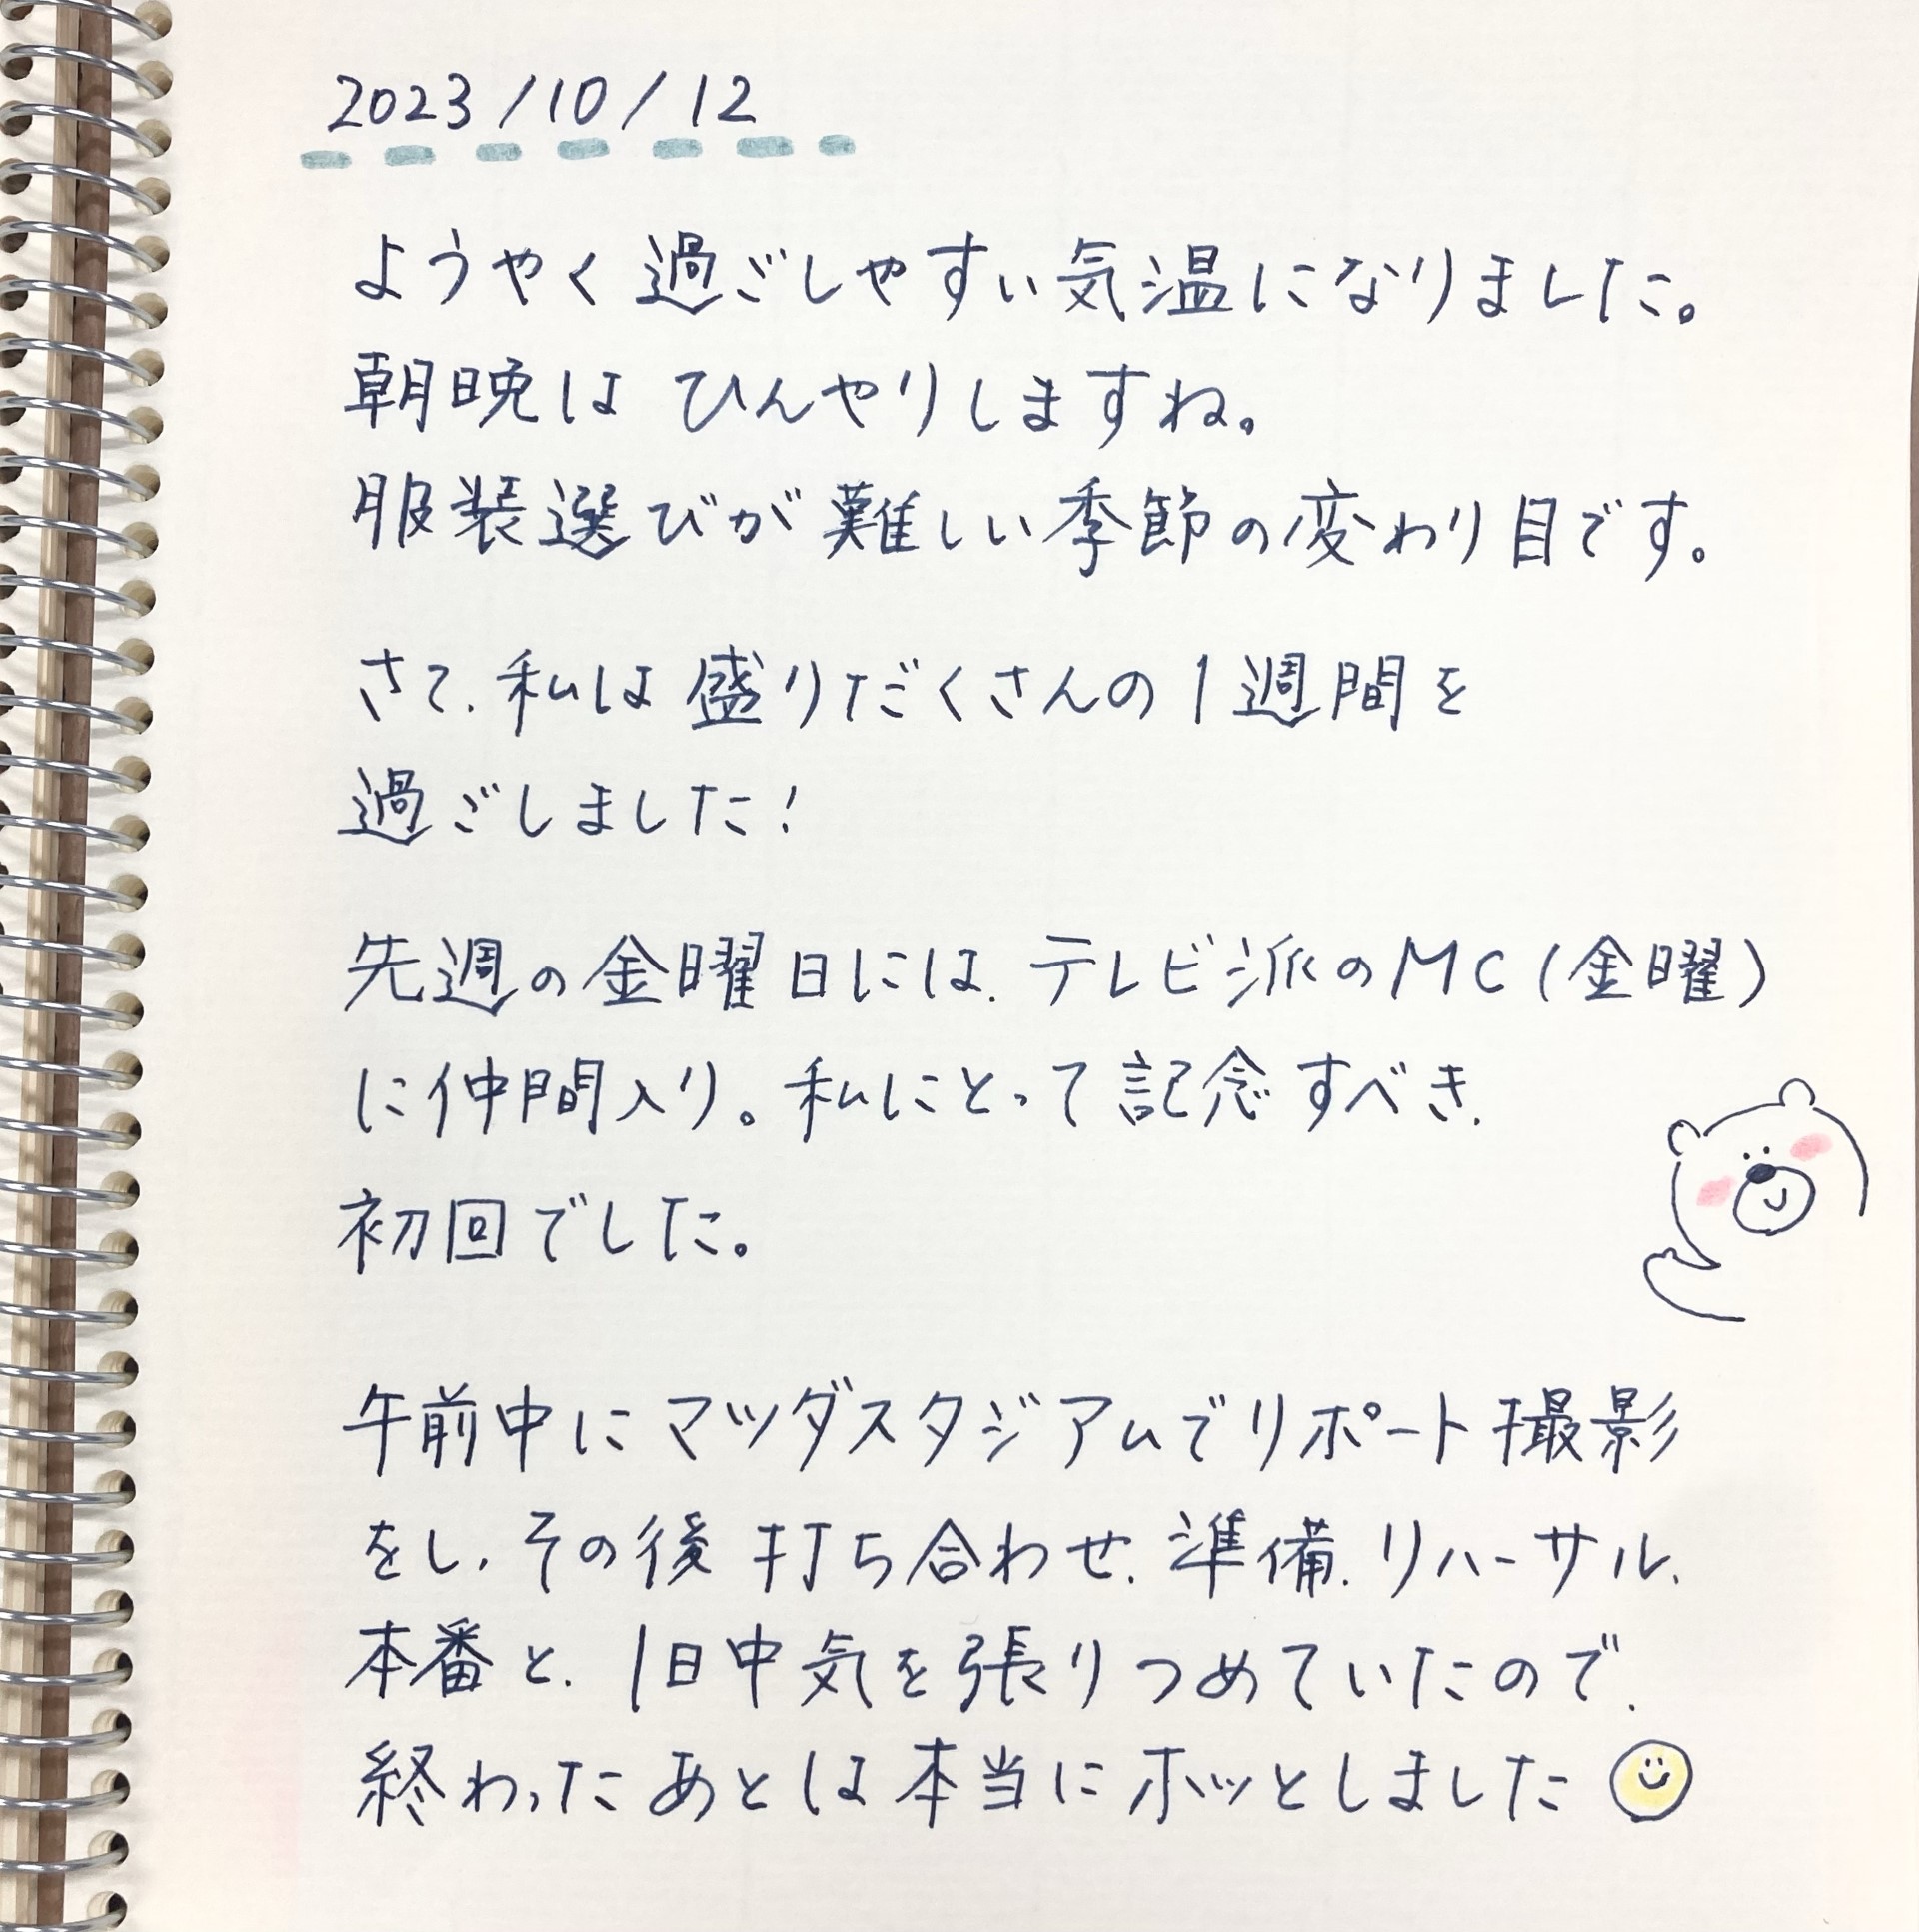 2023/10/12
ようやく過ごしやすい気温になりました。
朝晩は ひんやりしますね。
服装選びが難しい季節の変わり目です。
さて、私は盛りだくさんの1週間を
過ごしました！
先週の金曜日には、テレビ派のMC(金曜)
に仲間入り。私にとって記念すべき、
初回でした。
午前中にマツダスタジアムでリポート撮影
をし、その後 打ち合わせ、準備、リハーサル、
本番と、1日中気を張りつめていたので、
終わったあとは本当にホッとしました